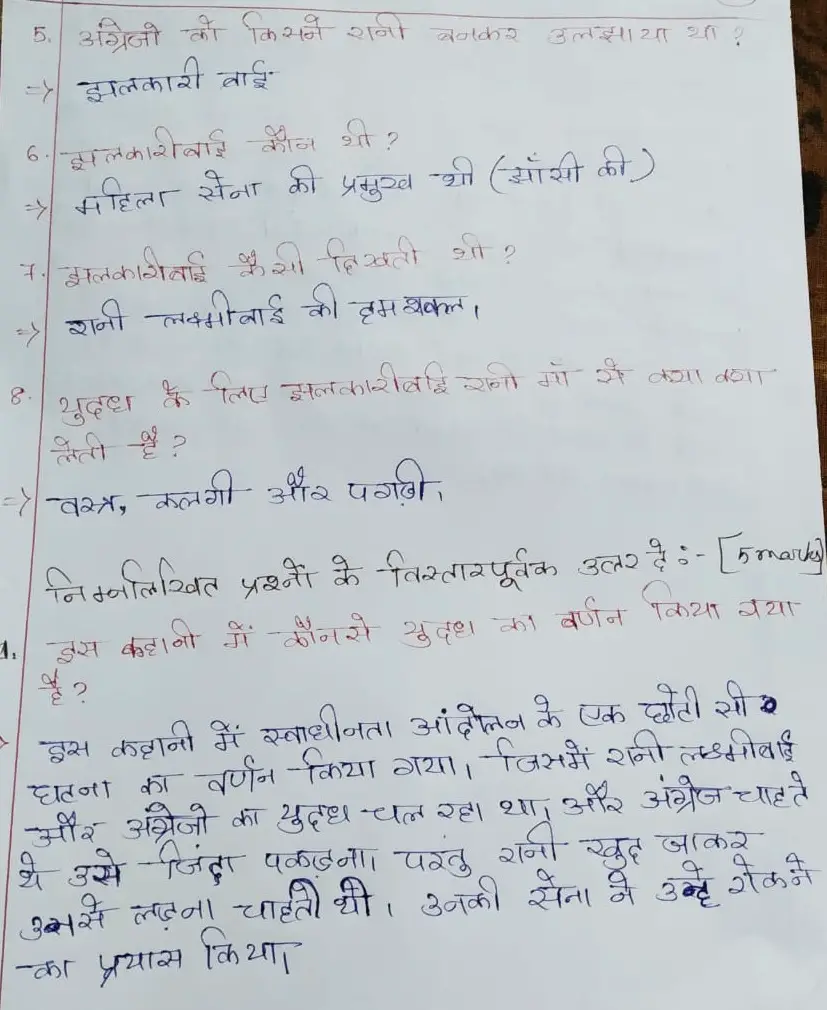 5. अंग्रेजो को किसने रानी बनकर उलझाया था?
=> झलकारी बाई
6. झलकारीबाई कौन थी?
=> महिला सेना की प्रमुख थी (झाँसी की)
7. झलकारीबाई कैसी दिखती थी?
=> रानी लक्ष्मीबाई की हमशक्ल।
8. युद्ध के लिए झलकारीबाई रानी माँ से क्या क्या
लेती है?
=> वस्त्र, कलगी और पगड़ी।
निम्नलिखित प्रश्नों के विस्तारपूर्वक उत्तर दे :- [5 marks]
1. इस कहानी में कौनसे युद्ध का वर्णन किया गया
है?
इस कहानी में स्वाधीनता आंदोलन के एक छोटी सी
घटना का वर्णन किया गया। जिसमें रानी लक्ष्मीबाई
और अंग्रेजो का युद्ध चल रहा था, और अंग्रेज चाहते
थे उसे जिंदा पकड़ना। परंतु रानी खुद जाकर
उनसे लड़ना चाहती थी। उनकी सेना ने उन्हे रोकने
का प्रयास किया।